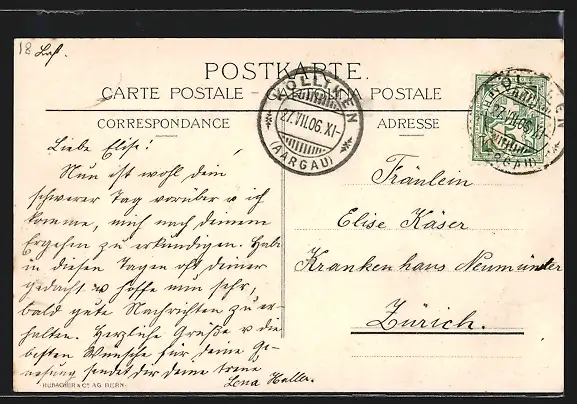 18 Laf.
POSTKARTE.
CARTE POSTALE - CARTOLINA POSTALE
CORRESPONDANCE
ADRESSE
KÖLLIKEN
27.VII.06.XI-
(AARGAU)
Liebe Elise!
Nun ist wohl dein
schwerer Tag vorüber u ich
komme, mich nach deinem
Ergehen zu erkundigen. Hab
in diesen Tagen oft deiner
gedacht u hoffe nun sehr,
bald gute Nachrichten zu er-
halten. Herzliche Grüße u die
besten Wünsche für deine Ge-
nesung sendet dir deine treue
Lena Haller.
Fräulein
Elise Käser
Krankenhaus Neumünster
Zürich.
27.VII.06.XI-
HUBACHER & Cie AG BERN.